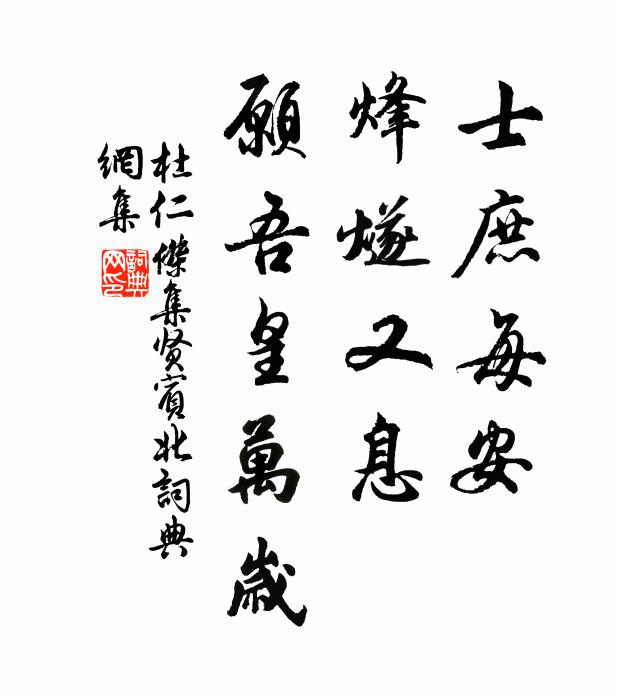 士庶每安
烽燧又息
願吾皇萬歲
杜仁傑集賢賓北詞典
網集
詞典網印